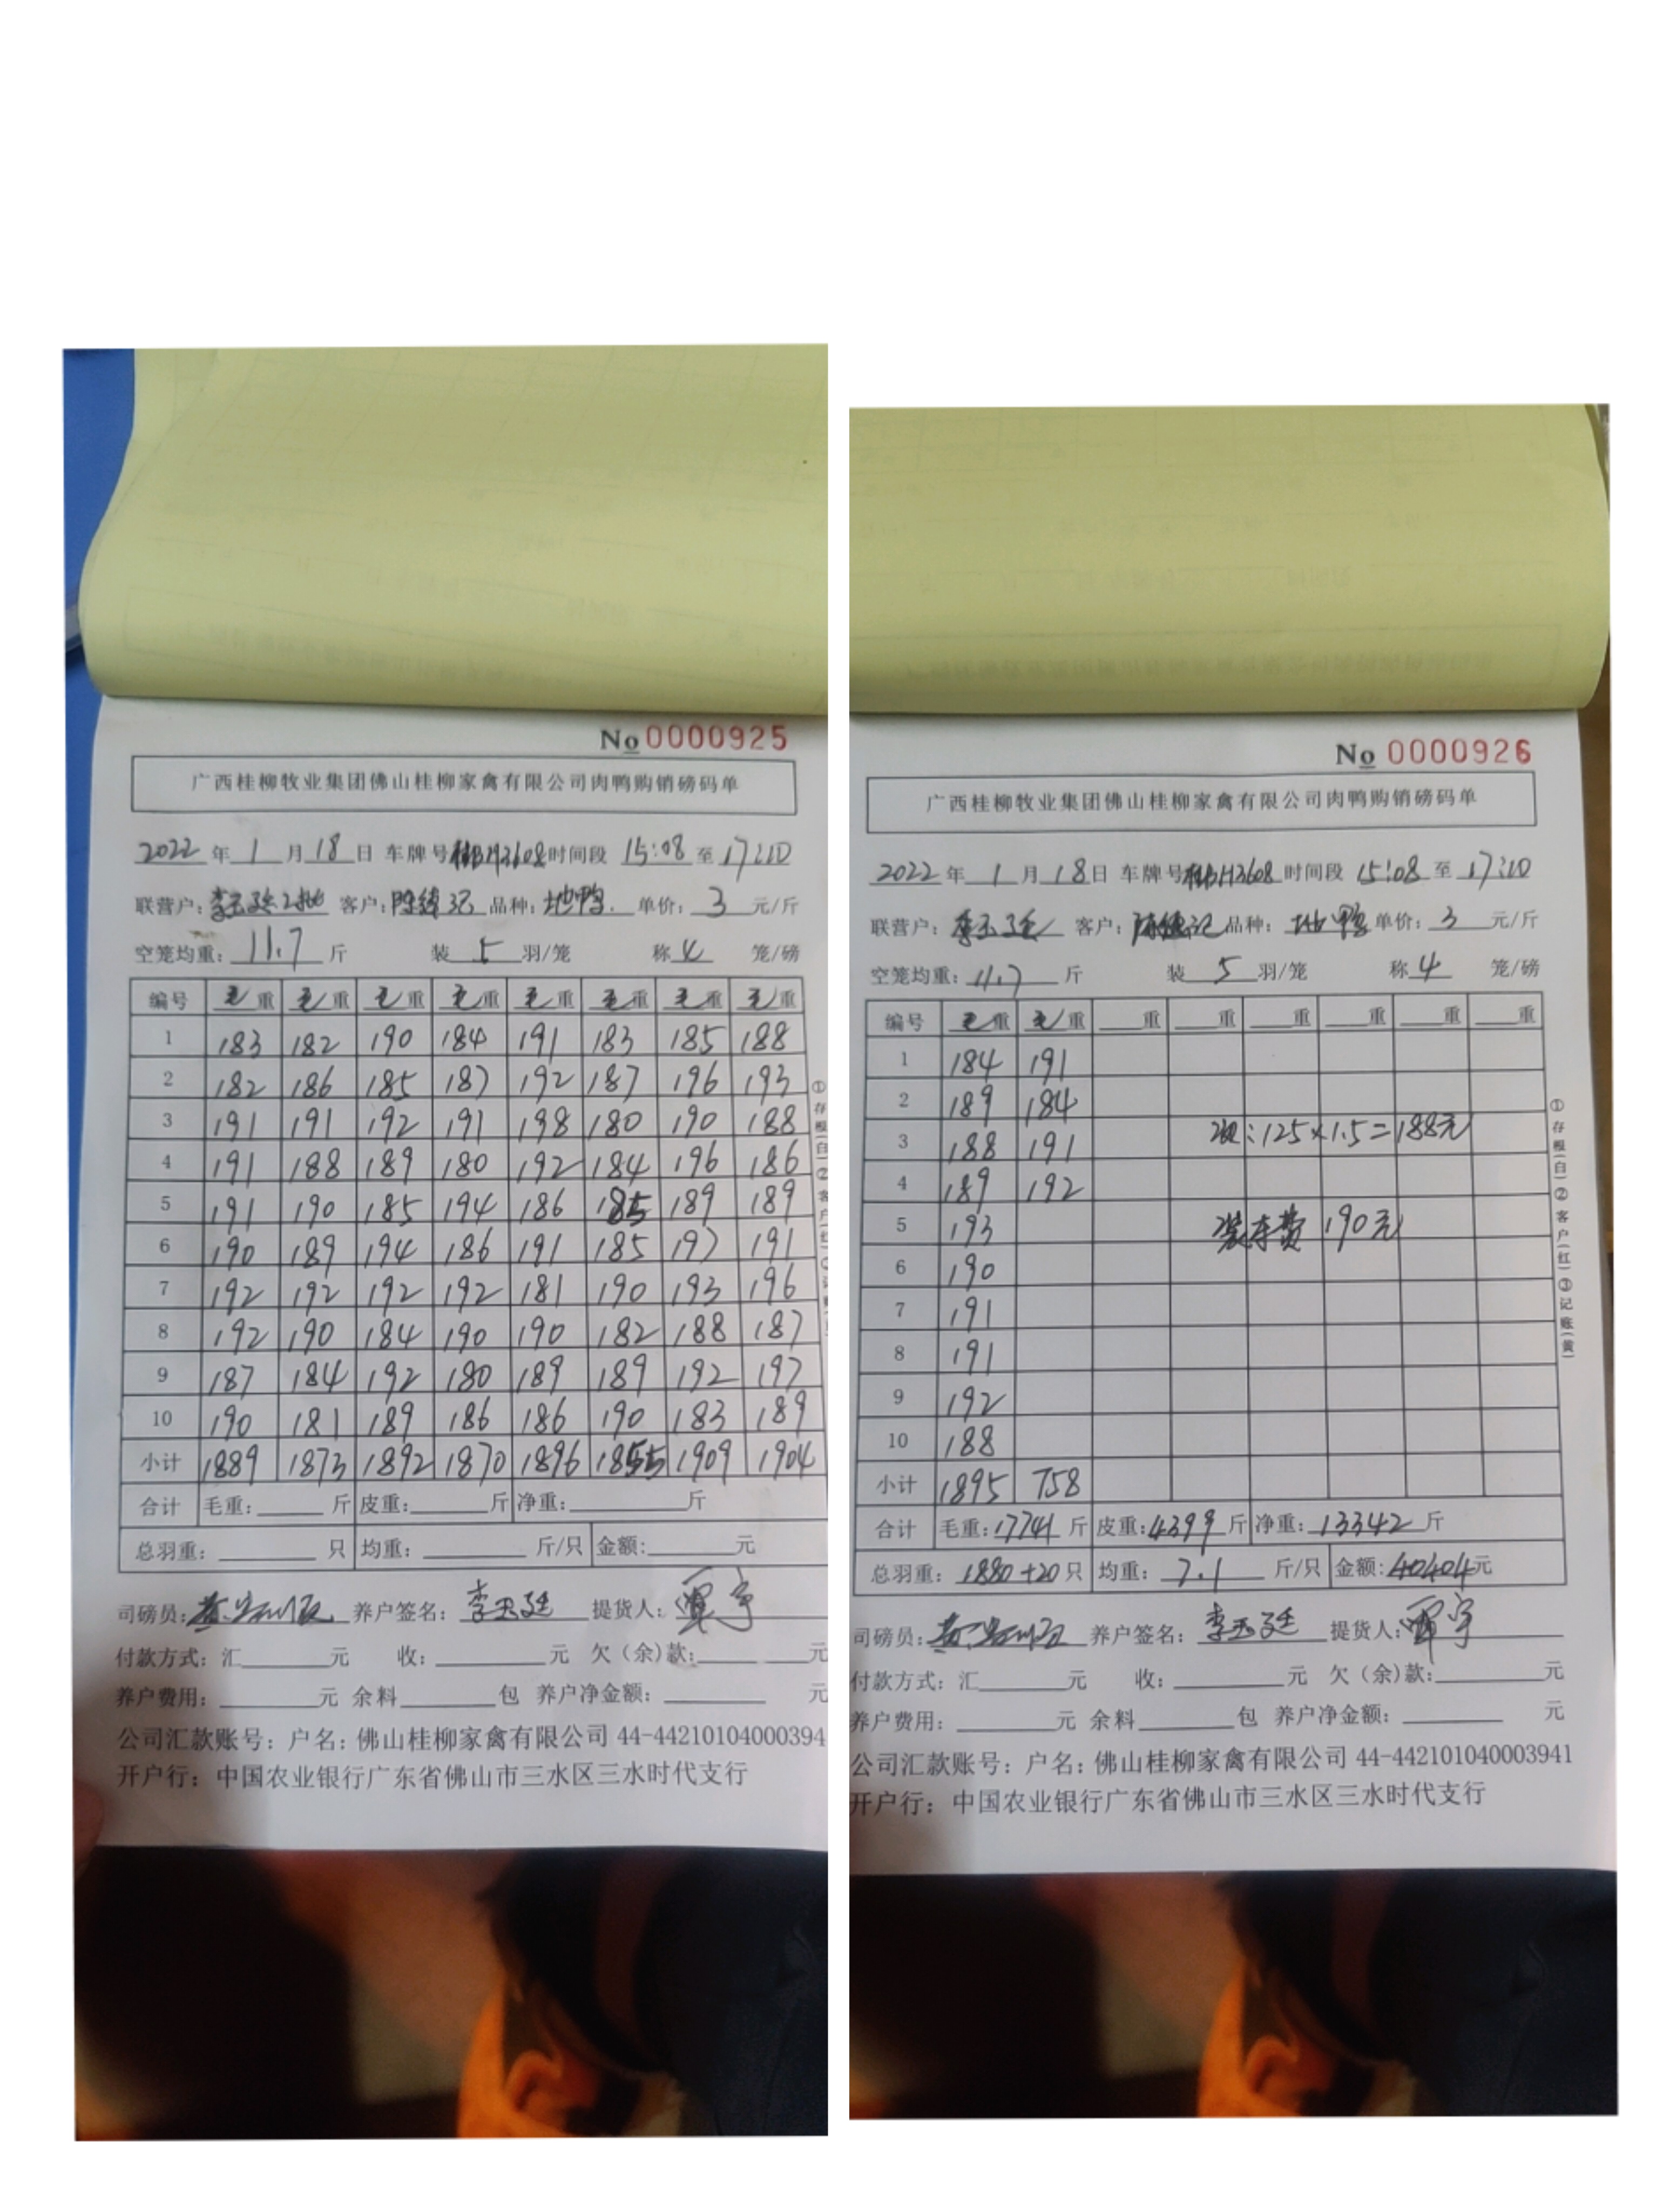 No 0000925
广西桂柳牧业集团佛山桂柳家禽有限公司肉鸭购销磅码单
2022 年 1 月 18 日 车牌号 H3608 时间段 15:08 至 17:10
联营户: 李玉廷2批 客户: 陈 记 品种: 地鸭. 单价: 3 元/斤
空笼均重: 11.7 斤 装 5 羽/笼 称 4 笼/磅
编号 毛重 毛重 毛重 毛重 毛重 毛重 毛重 毛重
1 183 182 190 184 191 183 185 188
2 182 186 185 187 192 187 196 193
3 191 191 192 191 198 180 190 188
4 191 188 189 180 192 184 196 186
5 191 190 185 194 186 185 189 189
6 190 189 194 186 191 185 197 191
7 192 192 192 192 181 190 193 196
8 192 190 184 190 190 182 188 187
9 187 184 192 180 189 189 192 197
10 190 181 189 186 186 190 183 189
小计 1889 1873 1892 1870 1896 1855 1909 1904
合计 毛重: 斤 皮重: 斤 净重: 斤
总羽重: 只 均重: 斤/只 金额: 元
司磅员: 养户签名: 李玉廷 提货人: 覃宇
付款方式: 汇 元 收: 元 欠（余)款: 元
养户费用: 元 余料 包 养户净金额: 元
公司汇款账号: 户名: 佛山桂柳家禽有限公司 44-44210104000394
开户行: 中国农业银行广东省佛山市三水区三水时代支行
①存根(白)②客户(红)
No 0000926
广西桂柳牧业集团佛山桂柳家禽有限公司肉鸭购销磅码单
2022 年 1 月 18 日 车牌号 H3608 时间段 15:08 至 17:10
联营户: 李玉廷 客户: 陈 记 品种: 地鸭 单价: 3 元/斤
空笼均重: 11.7 斤 装 5 羽/笼 称 4 笼/磅
编号 毛重 毛重 重 重 重 重 重 重
1 184 191
2 189 184
3 188 191 :125×1.5=188元
4 189 192
5 193 装车费 190元
6 190
7 191
8 191
9 192
10 188
小计 1895 758
合计 毛重: 17741 斤 皮重: 4399 斤 净重: 13342 斤
总羽重: 1880+20 只 均重: 7.1 斤/只 金额: 40404 元
司磅员: 养户签名: 李玉廷 提货人: 覃宇
付款方式: 汇 元 收: 元 欠（余)款: 元
养户费用: 元 余料 包 养户净金额: 元
公司汇款账号: 户名: 佛山桂柳家禽有限公司 44-442101040003941
开户行: 中国农业银行广东省佛山市三水区三水时代支行
①存根(白)②客户(红)③记账(黄)